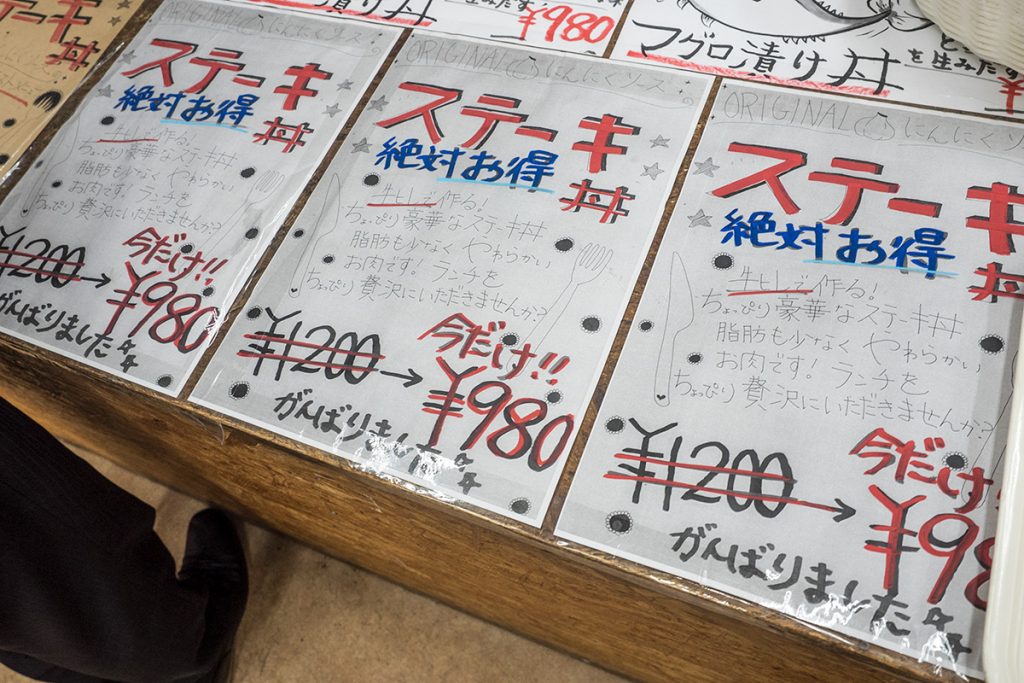 丼
¥980
マグロ漬け丼
を生みだす
ORIGINALにんにくソース
ステーキ
丼
絶対お得
牛ヒレで作る!
ちょっぴり豪華なステーキ丼
脂肪も少なく やわらかい
お肉です! ランチを
ちょっぴり贅沢にいただきませんか?
¥1200→
今だけ!!
¥980
がんばりました
ORIGINALにんにくソース
ステーキ
丼
絶対お得
牛ヒレで作る!
ちょっぴり豪華なステーキ丼
脂肪も少なく やわらかい
お肉です! ランチを
ちょっぴり贅沢にいただきませんか?
¥1200→
今だけ!!
¥980
がんばりました
ORIGINALにんにくソ
ステーキ
丼
絶対お得
牛ヒレで作る!
ちょっぴり豪華なステーキ丼
脂肪も少なく やわらかい
お肉です。ランチを
ちょっぴり贅沢にいただきませんか?
¥1200→
今だけ!
¥98
がんばりました